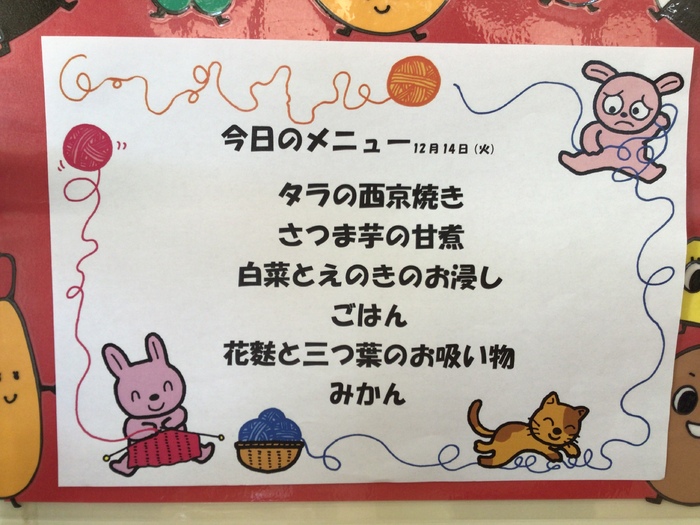 今日のメニュー12月14日(火)
タラの西京焼き
さつま芋の甘煮
白菜とえのきのお浸し
ごはん
花麩と三つ葉のお吸い物
みかん